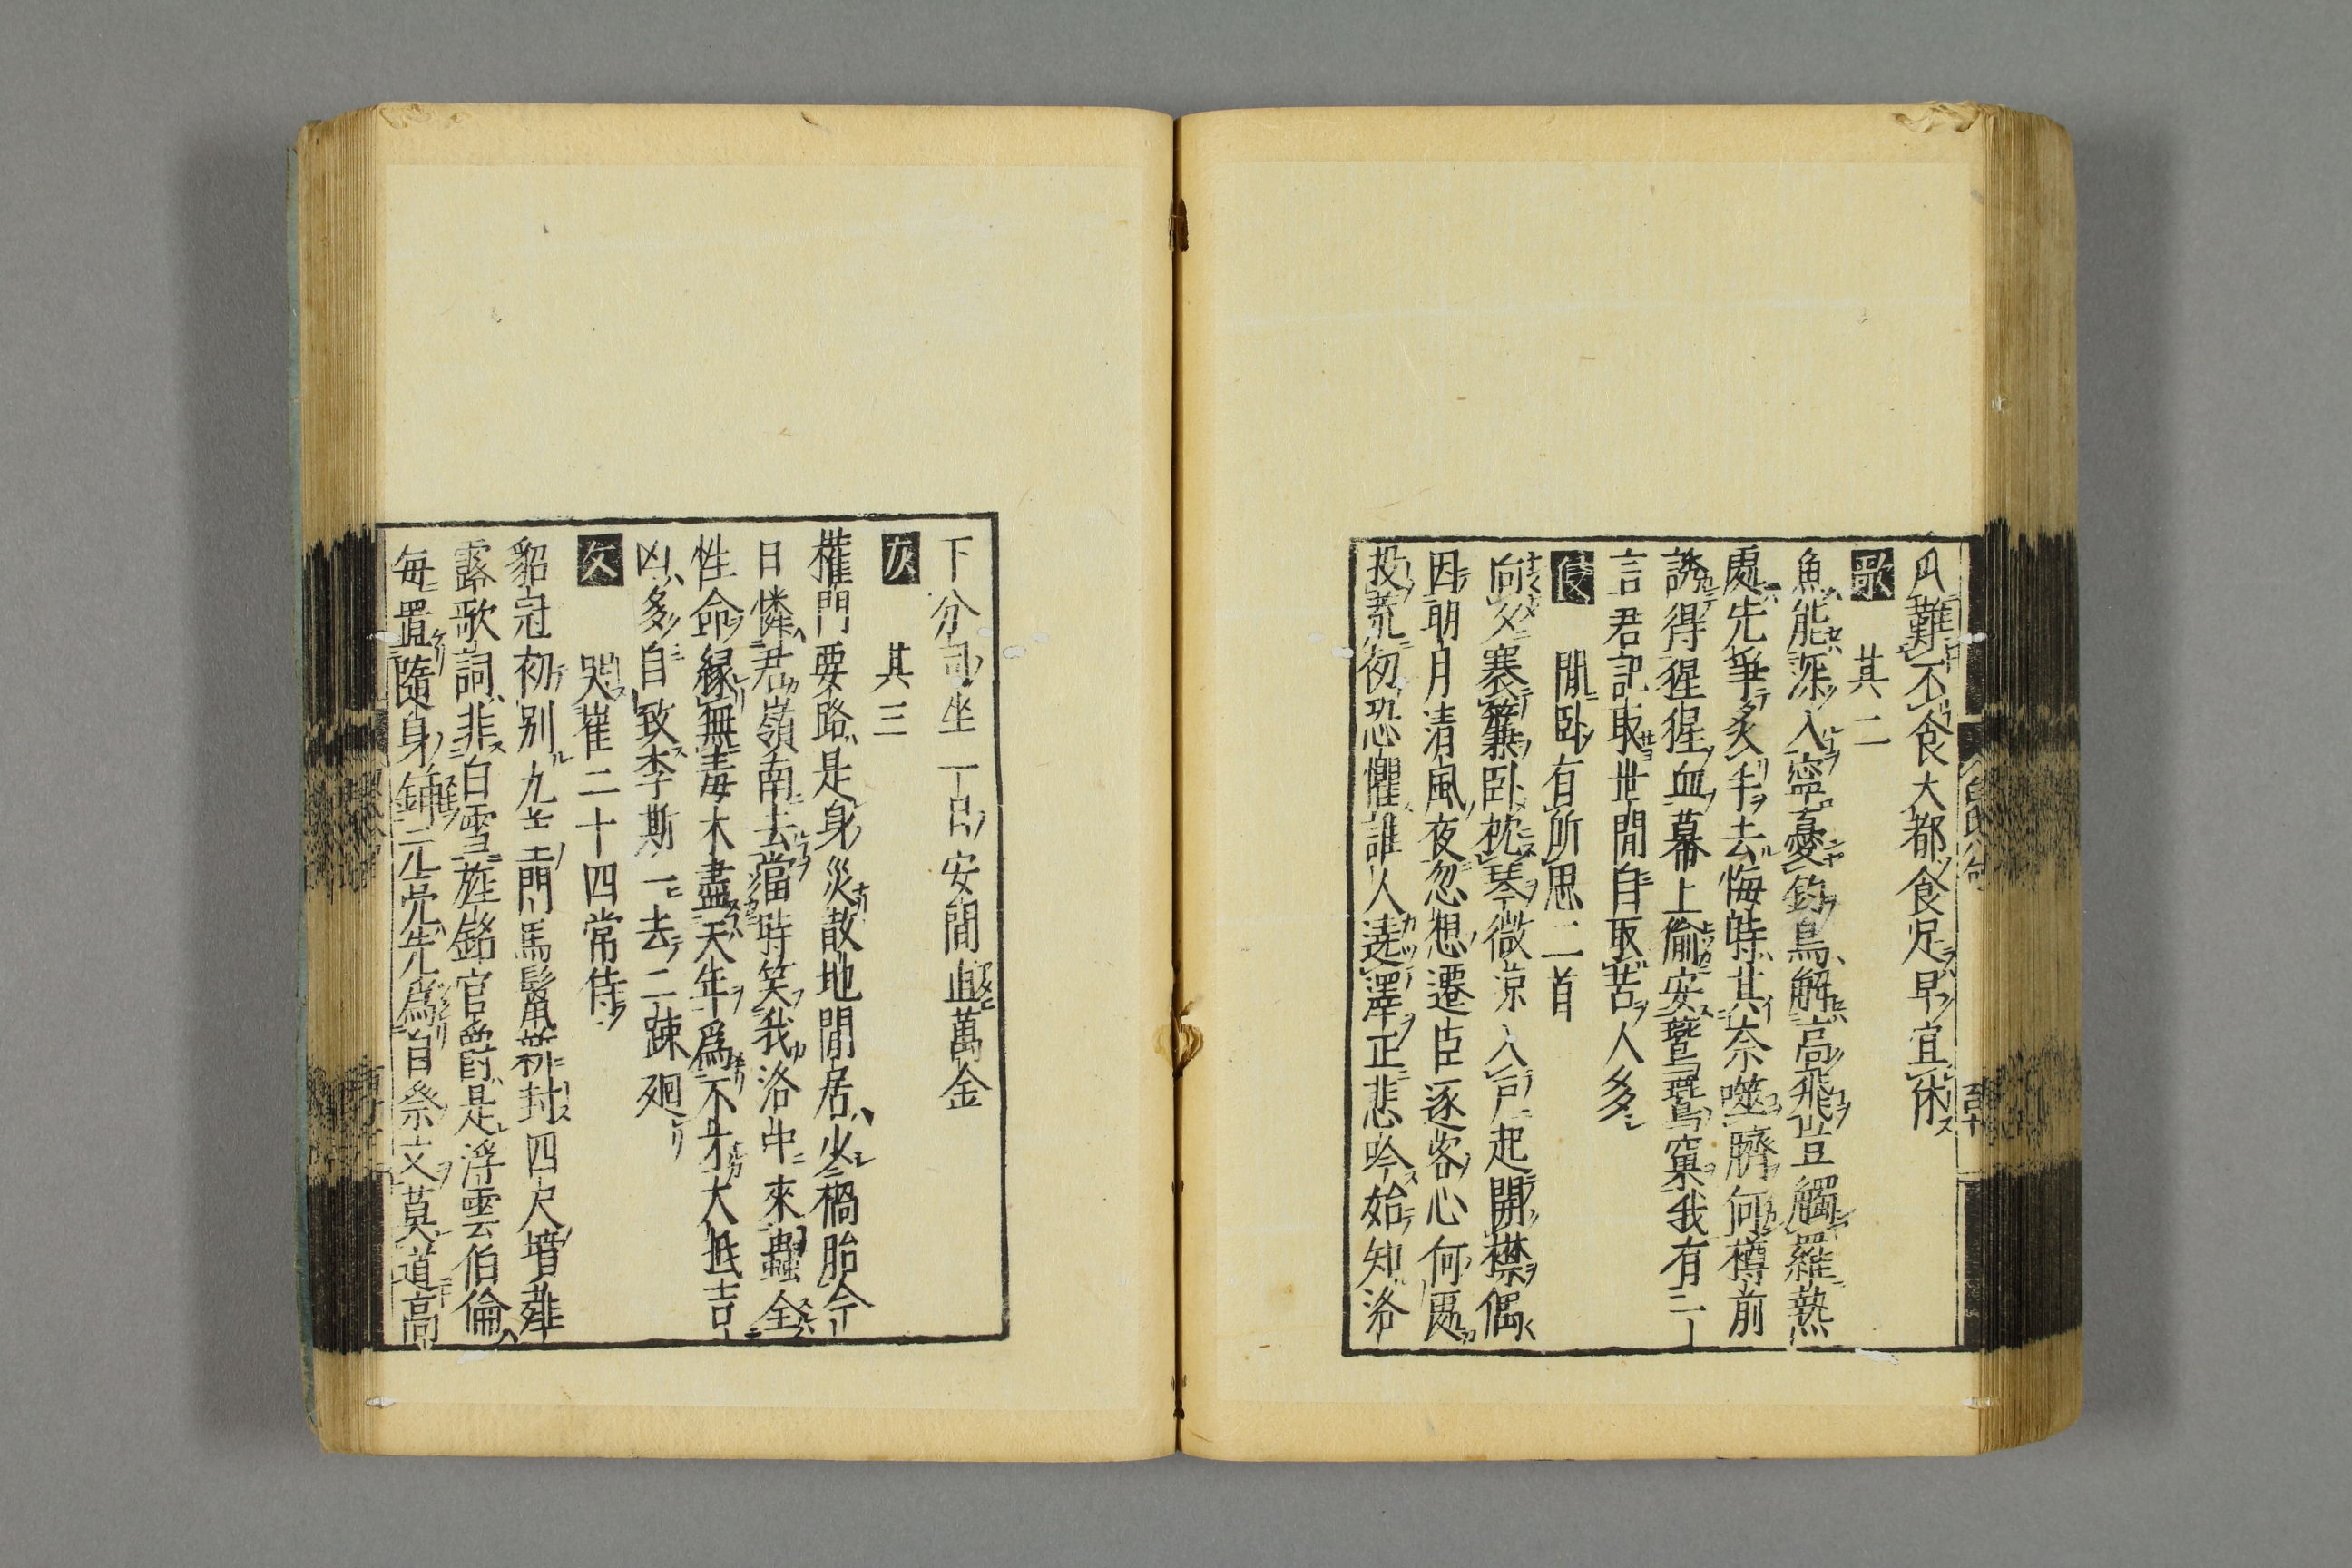 瓜難不食大都食足早宜休
歌 其二
魚能深入寧憂釣鳥解高飛豈觸羅熱
處先爭炙手去悔時其奈噬臍何樽前
誘得猩猩血幕上偷安鷰鷰窠我有一
言君記取世間自取苦人多
侵 閒卧有所思二首
向夕褰簾卧枕琴微涼入戸起開襟偶
因明月清風夜忽想遷臣逐客心何處
投荒初恐懼誰人遶澤正悲吟始知洛
下分司坐一日安閒直萬金
灰 其三
權門要路是身災散地閒居少禍胎今
日憐君嶺南去當時笑我洛中來蟲全
性命縁無毒木盡天年爲不才大抵吉
凶多自致李斯一去二踈廻
文 哭崔二十四常侍
貂冠初别九重門馬鬣新封四尺墳薤
露歌詞非白雪旌銘官爵是浮雲伯倫
毎置隨身鍤元亮先爲自祭文莫道高